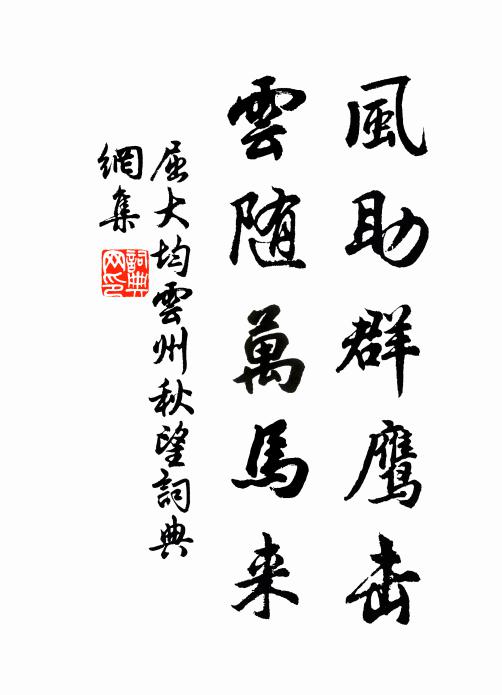 風助群鹰击
雲随萬馬来
屈大均雲州秋望詞典
網集
詞典
网印